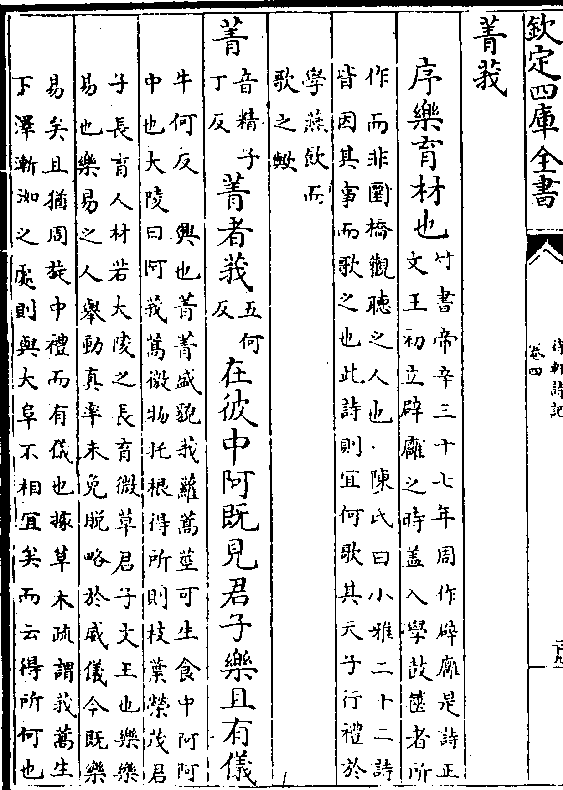 欽定四庫全書
待軒詩記
卷四
菁莪
序樂育材也
竹書帝辛三十七年周作辟廱是詩正
文王初立辟廱之時盖入學鼓篋者所
作而非圜橋觀聽之人也陳氏曰小雅二十二詩
皆因其事而歌之也此詩則宜何歌其天子行禮於
學燕飲而
歌之歟
菁
音精子
丁反
菁者莪
五何
反
在彼中阿既見君子樂且有儀
牛何反 興也菁菁盛貌莪蘿蒿莖可生食中阿阿
中也大陵曰阿莪蒿微物托根得所則枝葉榮茂君
子長育人材若大陵之長育微草君子文王也樂樂
易也樂易之人舉動真率未免脱略於威儀今既樂
易矣且猶周旋中禮而有儀也據草木疏謂莪蒿生
下澤漸洳之處則與大阜不相宜矣而云得所何也